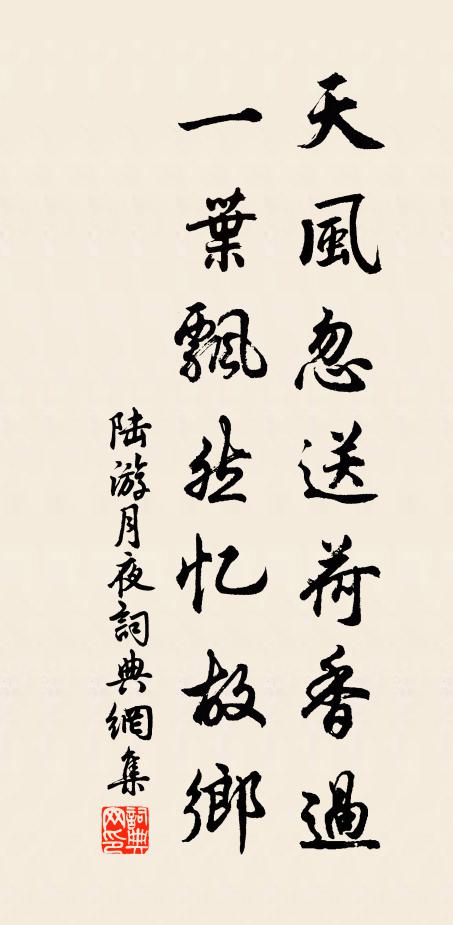 天風忽送荷香過
一葉飄然忆故鄉
陸游月夜詞典網集
詞典网印